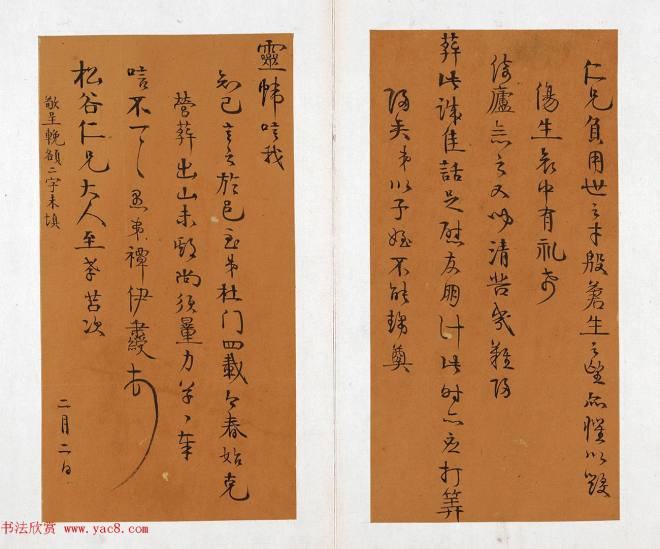 仁兄負用世之才殷蒼生之望亦惟以毀
傷生哀中有礼
倚廬之又以清苦
葬此誠佳話足慰友朋計此時亦應打算
歸矣弟以子姪不能躬奠
靈幃唁我
知已言之於邑至弟杜門四載今春始克
營葬出山未敢尚須量力草草奉
唁不一一愚弟禫伊秉綬
松谷仁兄大人至孝苫次
敬呈輓額二字未填
二月二日
书法欣赏 www.yac8.com